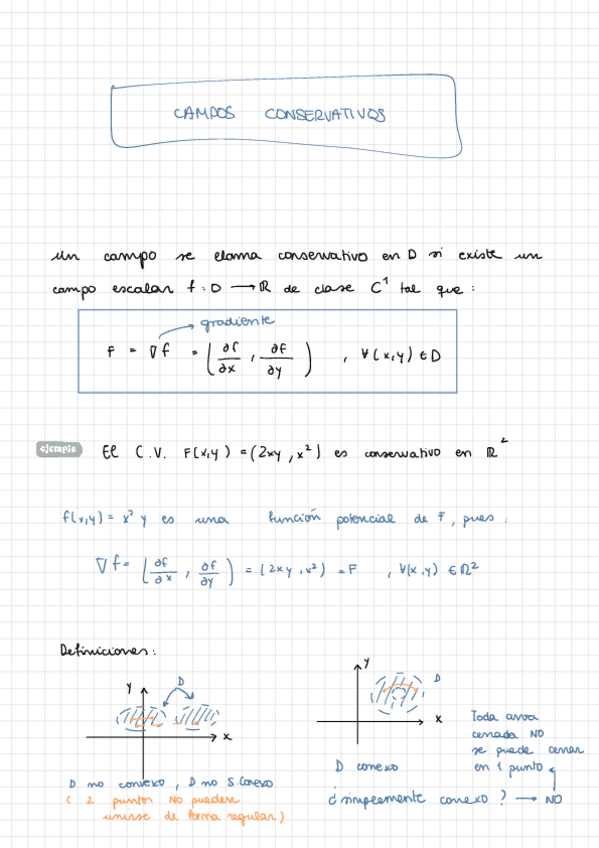 CAMPOS CONSERVATIVOS
Un campo se llama conservativo en D si existe un
campo escalar f: D → ℝ de clase C¹ tal que:
gradiente
F = ∇f = (∂f/∂x, ∂f/∂y), ∀(x,y) ∈ D
ejemplo
El C.V. F(x,y) = (2xy, x²) es conservativo en ℝ²
f(x,y) = x² y es una función potencial de F, pues:
∇f = (∂f/∂x, ∂f/∂y) = (2xy, x²) = F, ∀(x,y) ∈ ℝ²
Definiciones:
y
D
x
D no conexo, D no S.Conexo
(2 puntos NO pueden
unirse de forma regular)
y
D
x
D conexo
¿simplemente conexo? → NO
Toda curva
cerrada NO
se puede cerrar
en 1 punto